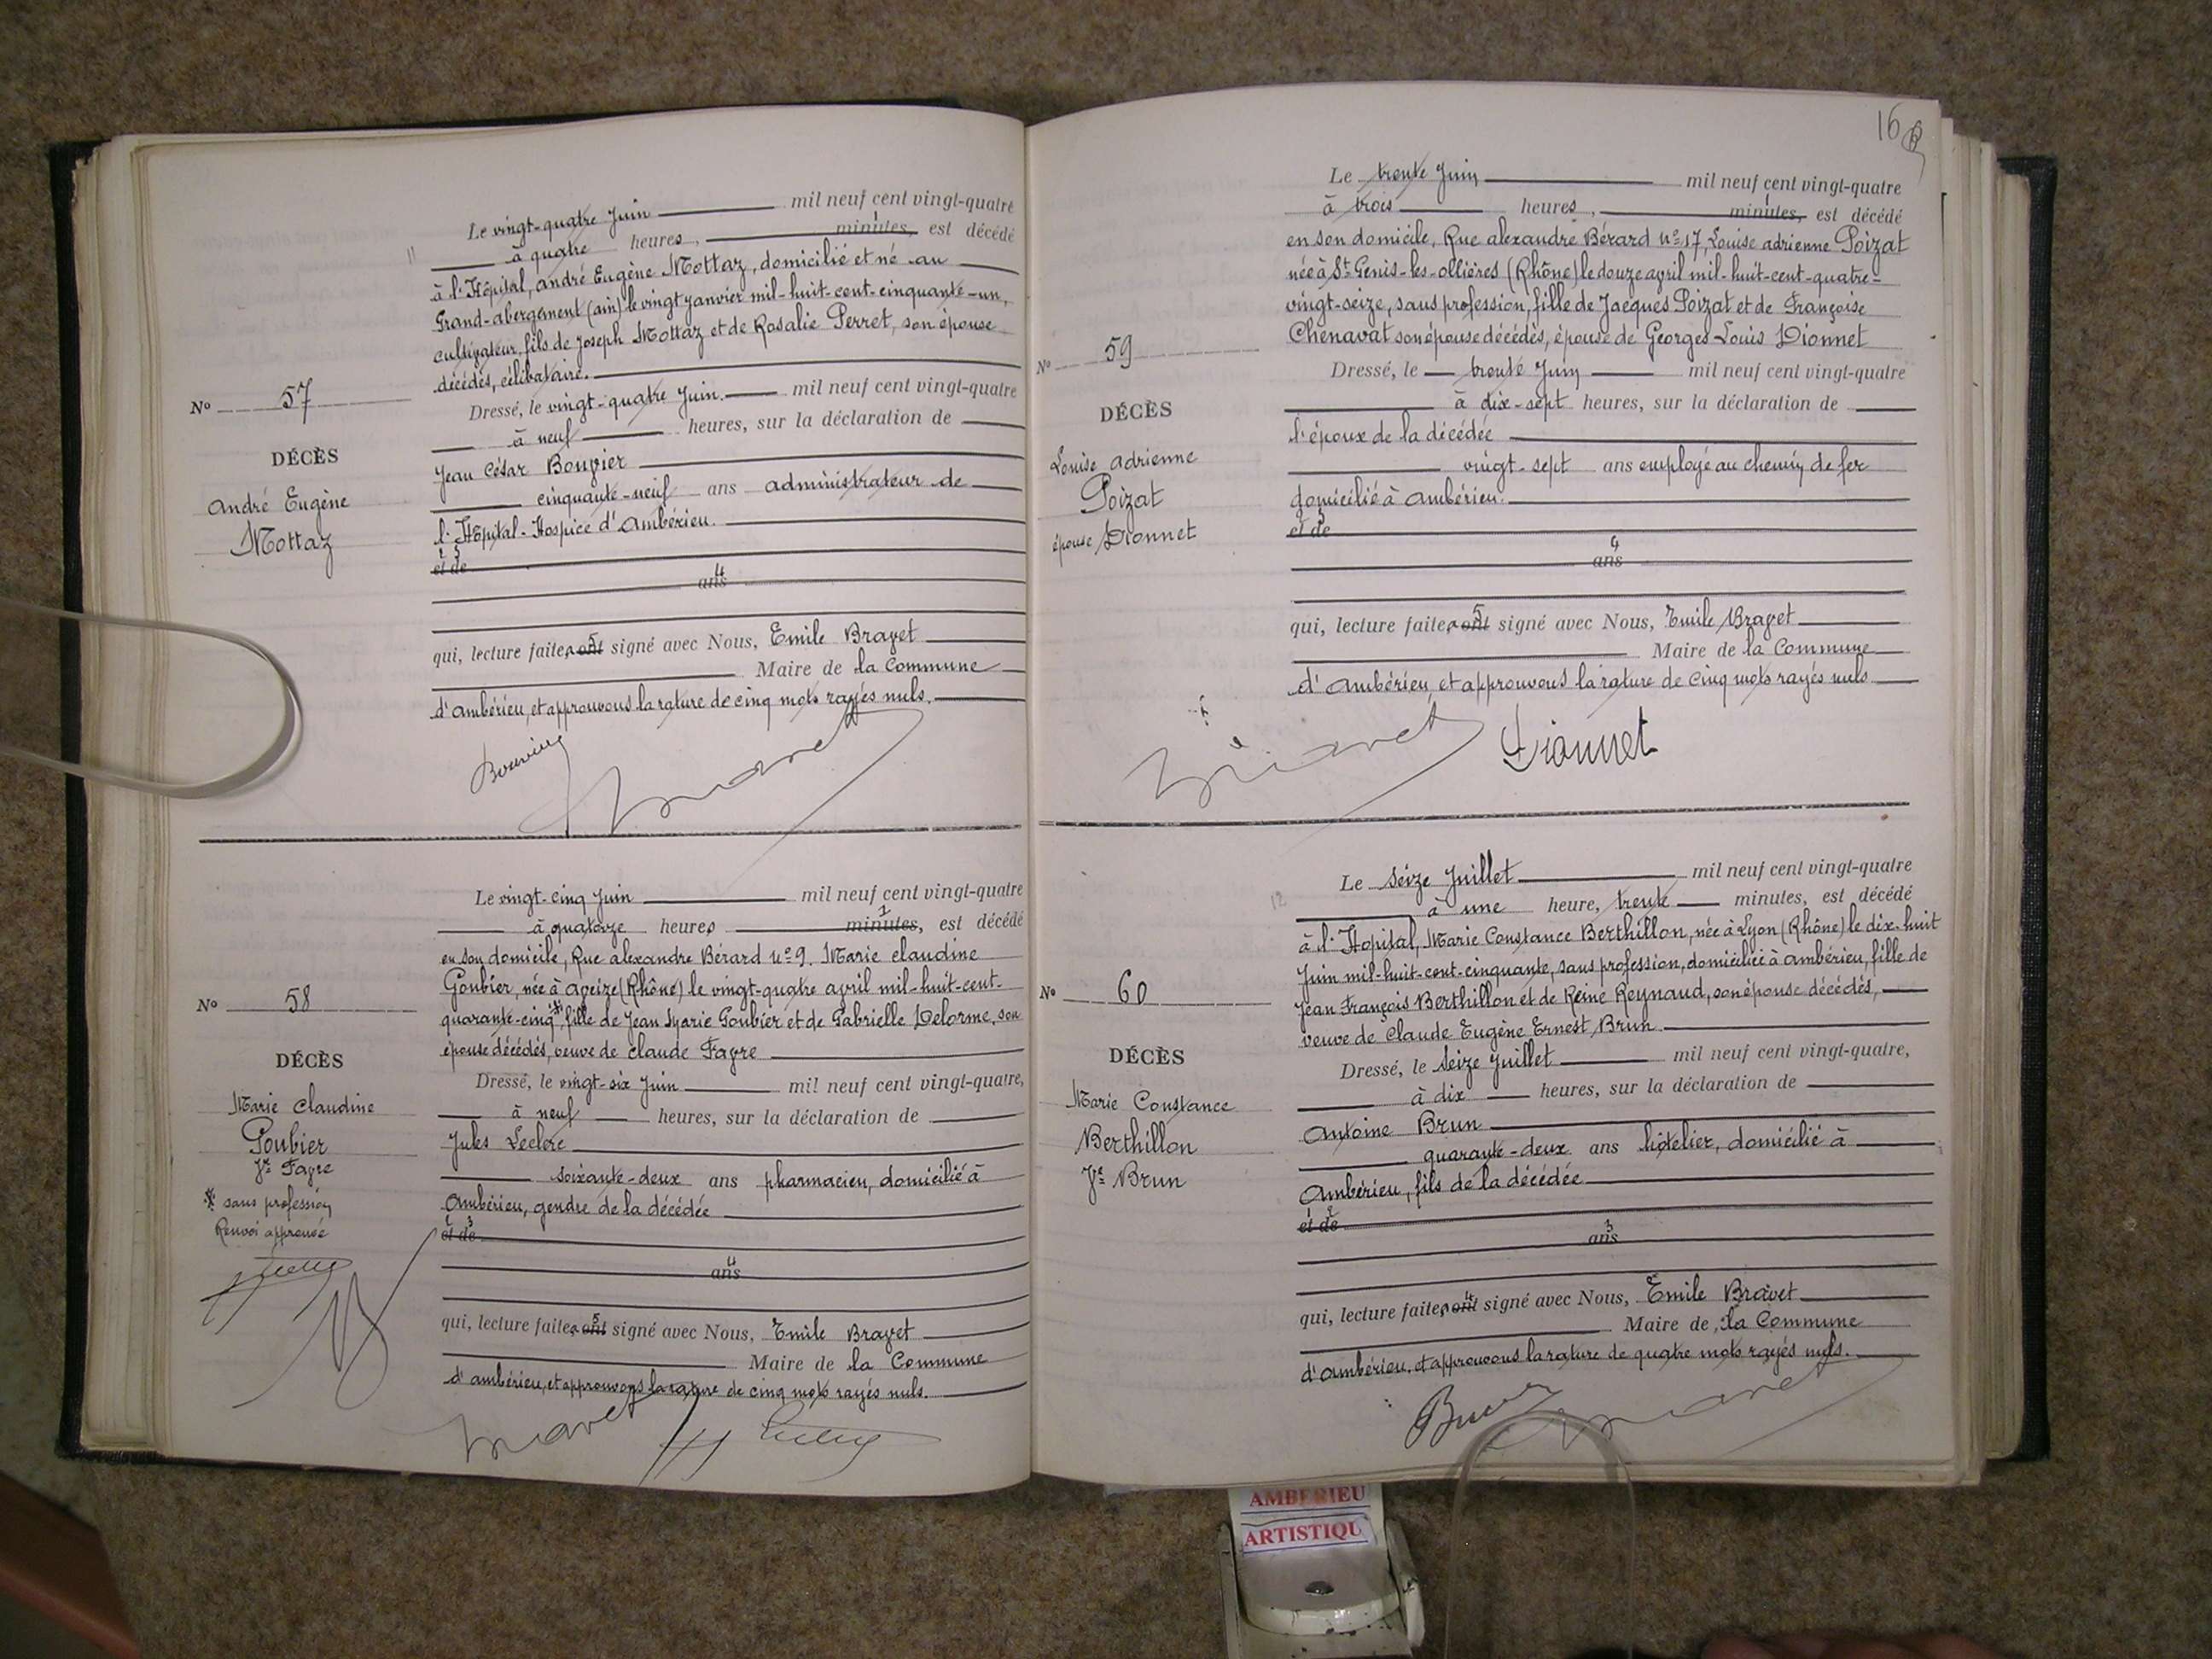 Le vingt-quatre Juin mil neuf cent vingt-quatre
à quatre heures, minutes, est décédé
à l'Hôpital, andré Eugène Mottaz, domicilié et né au
Grand-abergement (ain) le vingt janvier mil-huit-cent-cinquante-un,
cultivateur, fils de Joseph Mottaz et de Rosalie Perret, son épouse
décédés, célibataire.
Nº 57
Dressé, le vingt-quatre Juin. mil neuf cent vingt-quatre
à neuf heures, sur la déclaration de
DÉCÈS
Jean César Bouvier
André Eugène
cinquante-neuf ans administrateur de
Mottaz
l'Hôpital-Hospice d'Ambérieu.
et de
ans
qui, lecture faite, ont signé avec Nous, Emile Bravet
Maire de la Commune
d'ambérieu, et approuvons la rature de cinq mots rayés nuls.
Bouvier Bravet
Le vingt-cinq Juin mil neuf cent vingt-quatre
à quatorze heures minutes, est décédé
en son domicile, Rue alexandre Bérard nº 9. Marie claudine
Goubier, née à aveize (Rhône) le vingt-quatre avril mil-huit-cent-
Nº 58
quarante-cinq*, fille de Jean Marie Goubier et de Gabrielle Delorme, son
épouse décédés, veuve de claude Fayre
DÉCÈS
Dressé, le vingt-six Juin mil neuf cent vingt-quatre,
Marie Claudine
à neuf heures, sur la déclaration de
Goubier
Jules Leclerc
Vve Fayre
soixante-deux ans pharmacien, domicilié à
* sans profession
Ambérieu, gendre de la décédée
Renvoi approuvé
et de
ans
qui, lecture faite, ont signé avec Nous, Emile Bravet
Maire de la Commune
d'ambérieu, et approuvons la rature de cinq mots rayés nuls.
Bravet
16
Le trente Juin mil neuf cent vingt-quatre
à trois heures, minutes, est décédé
en son domicile, Rue alexandre Bérard nº 17, Louise adrienne Poizat
née à St Genis-les-ollières (Rhône) le douze avril mil-huit-cent-quatre-
vingt-seize, sans profession, fille de Jacques Poizat et de Françoise
Chenavat son épouse décédés, épouse de Georges Louis Dionnet
Nº 59
Dressé, le trente Juin mil neuf cent vingt-quatre
à dix-sept heures, sur la déclaration de
DÉCÈS
l'époux de la décédée
Louise adrienne
vingt-sept ans employé au chemin de fer
Poizat
domicilié à ambérieu.
épouse Dionnet
et de
ans
qui, lecture faite, ont signé avec Nous, Emile Bravet
Maire de la Commune
d'ambérieu, et approuvons la rature de cinq mots rayés nuls
Bravet Dionnet
Le seize Juillet mil neuf cent vingt-quatre
à une heure, trente minutes, est décédé
à l'Hopital, Marie Constance Berthillon, née à Lyon (Rhône) le dix-huit
Juin mil-huit-cent-cinquante, sans profession, domiciliée à ambérieu, fille de
Nº 60
Jean François Berthillon et de Reine Reynaud, son épouse décédés,
veuve de Claude Eugène Ernest Brun.
DÉCÈS
Dressé, le seize Juillet mil neuf cent vingt-quatre,
à dix heures, sur la déclaration de
Marie Constance
Antoine Brun
Berthillon
quarante-deux ans hôtelier, domicilié à
Vve Brun
Ambérieu, fils de la décédée
et de
ans
qui, lecture faite, ont signé avec Nous, Emile Bravet
Maire de la Commune
d'ambérieu, et approuvons la rature de quatre mots rayés nuls.
Brun Bravet
AMBERIEU
ARTISTIQU